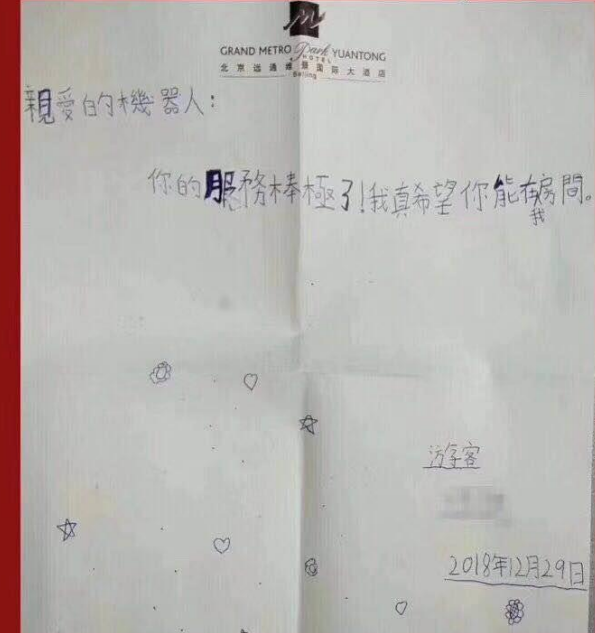 GRAND METRO Park YUANTONG
HOTEL
北京远通维景国际大酒店
Beijing
親愛的機器人：
你的服務棒極了！我真希望你能在我房間。
游客
2018年12月29日